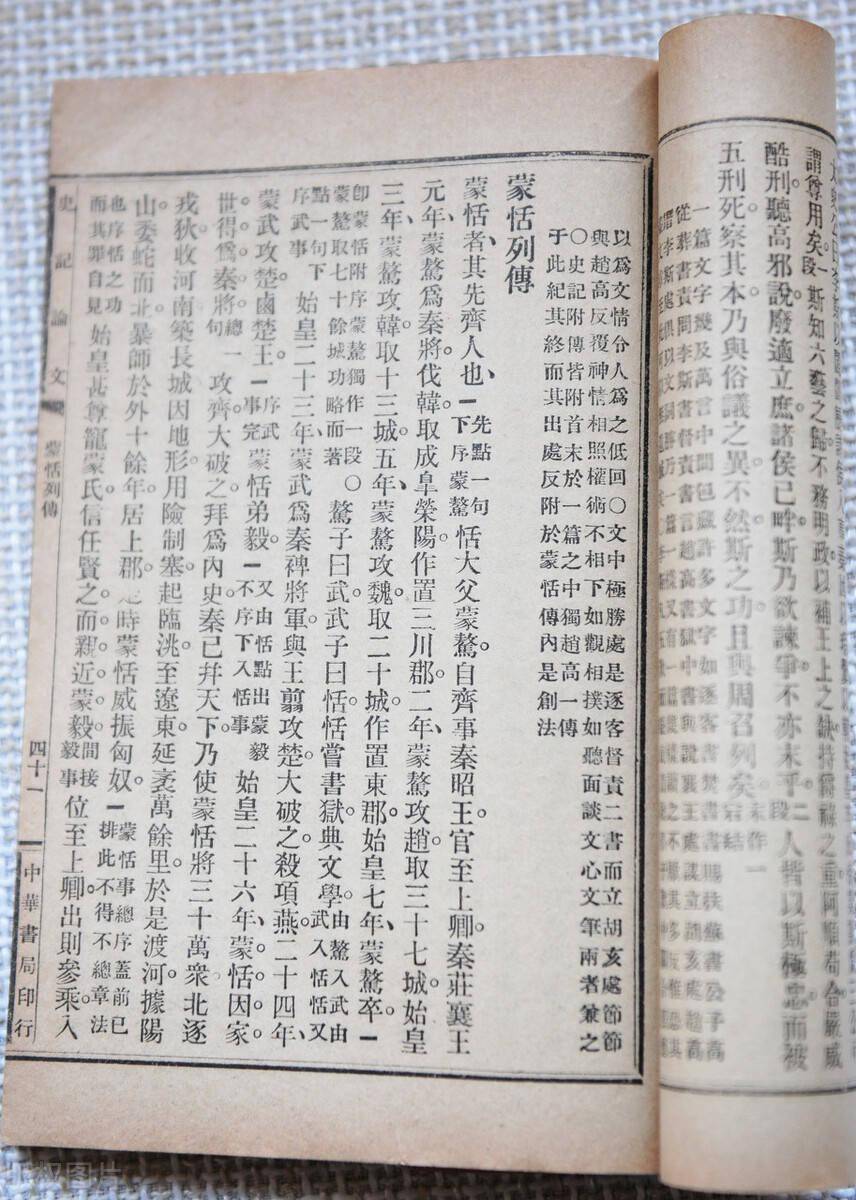 謂尊用矣段一斯知六藝之歸不務明政以補王上之缺持爵祿之重阿順苟合嚴威
酷刑聽高邪說廢適立庶諸侯已畔斯乃欲諫爭不亦末乎段二人皆以斯極忠而被
五刑死察其本乃與俗議之異不然斯之功且與周召列矣
一篇文字幾及萬言中間包藏許多文字如逐客書焚書書賜扶蘇書公子高
從葬書責問李斯書督責書言趙高書獄中書
以爲文情令人爲之低回〇文中極勝處是逐客督責二書而立胡亥處節節
與趙高反覆神情相照權術不相下如觀相撲如聽面談文心文筆兩者兼之
〇史記附傳皆附首末於一篇之中獨趙高一傳
于此紀其終而其出處反附於蒙恬傳內是創法
蒙恬列傳
蒙恬者其先齊人也一先點一句下序蒙驁恬大父蒙驁自齊事秦昭王官至上卿秦莊襄王
元年蒙驁爲秦將伐韓取成皐滎陽作置三川郡二年蒙驁攻趙取三十七城始皇
三年蒙驁攻韓取十三城五年蒙驁攻魏取二十城作置東郡始皇七年蒙驁卒一
卽蒙恬附序蒙驁獨作一段蒙驁取七十餘城功略而著〇驁子曰武武子曰恬恬嘗書獄典文學由驁入武由武入恬恬又
點一句下序武事始皇二十三年蒙武爲秦裨將軍與王翦攻楚大破之殺項燕二十四年
蒙武攻楚鹵楚王一序武事完蒙恬弟毅一又由恬點出蒙毅不序下入恬事始皇二十六年蒙恬因家
世得爲秦將總一句攻齊大破之拜爲內史秦已幷天下乃使蒙恬將三十萬衆北逐
戎狄收河南築長城因地形用險制塞起臨洮至遼東延袤萬餘里於是渡河據陽
山委蛇而北暴師於外十餘年居上郡是時蒙恬威振匈奴一蒙恬事總序蓋前已排此不得不總章法
也序恬之功而其罪自見始皇甚尊寵蒙氏信任賢之而親近蒙毅間接毅事位至上卿出則參乘入
史記論文
蒙恬列傳
四十一
中華書局印行
版权图片